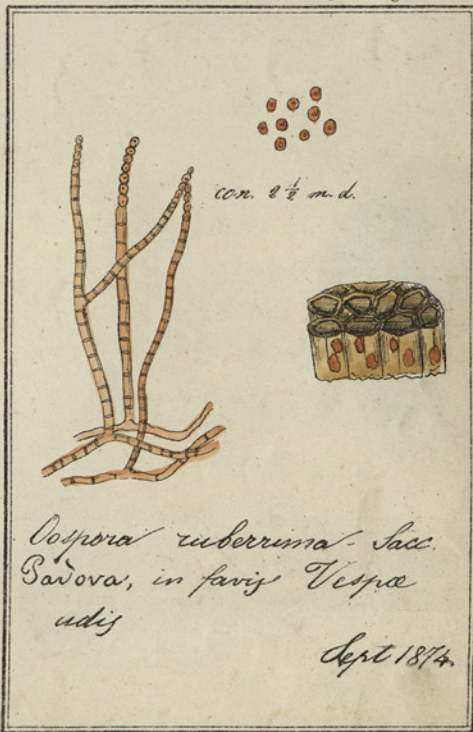 con. 2 ½ m. d.
Oospora ruberrima - Sacc.
Padova, in favis Vespæ
udis
Sept 1874.